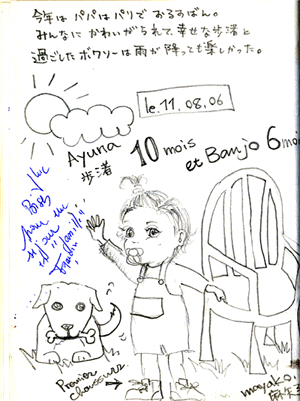 今年は パパはパリで おるすばん。
みんなに かわいがられて、幸せな歩渚と
過ごした ボワソーは雨が降っても楽しかった。
le.11.08.06
Ayuna
歩渚
10 mois
et Banjo 6 mo
pour un
séjour
en "famille"
Premier
chaussures
masyako.